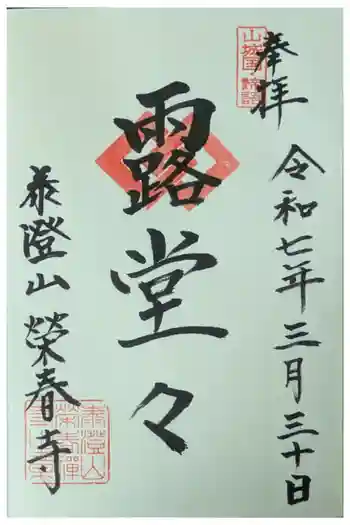 奉拝
令和七年三月三十日
露堂々
泰澄山 榮春寺